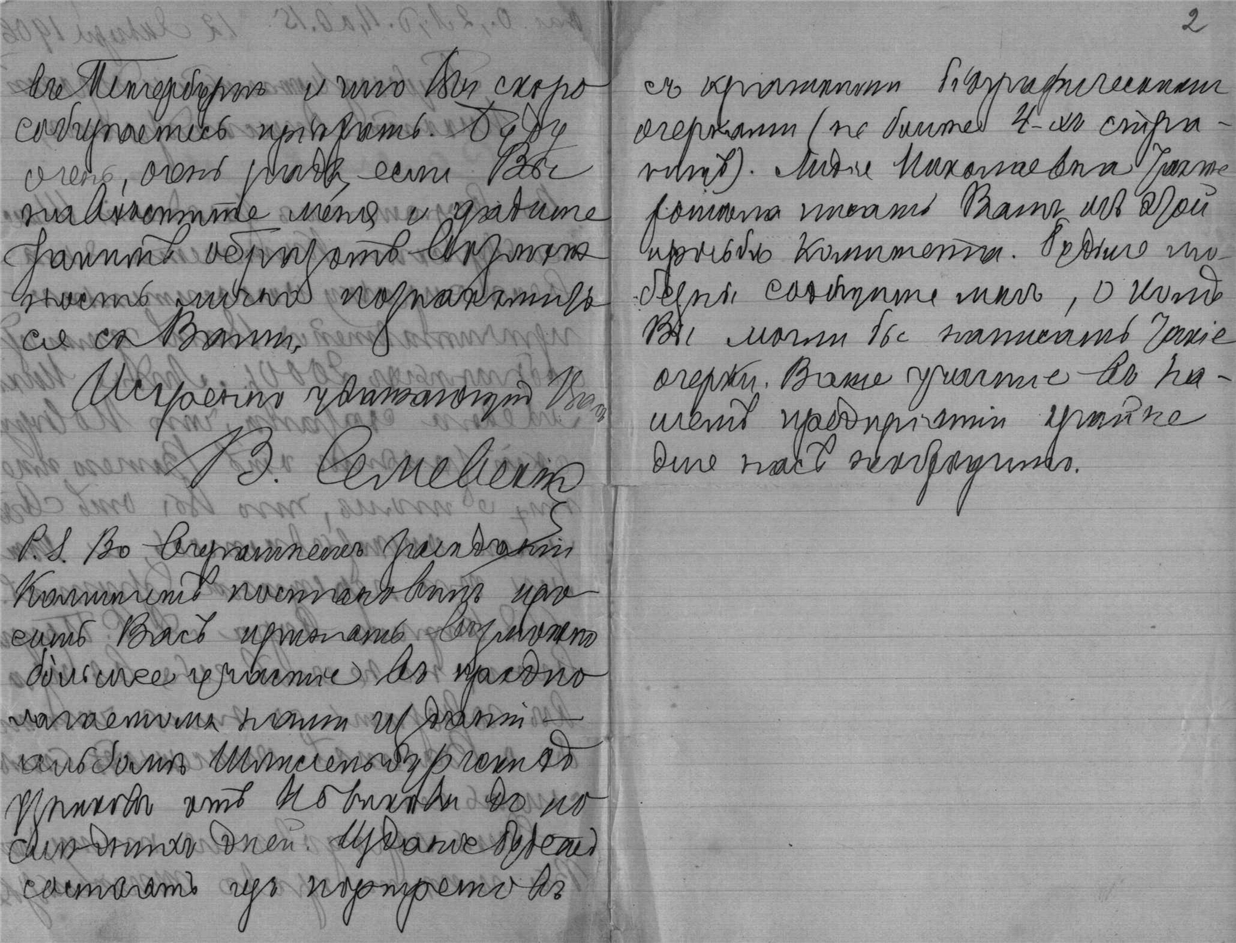 въ Петербургъ и что Вы скоро
собираетесь пріѣхать. Буду
очень, очень радъ, если Вы
навѣстите меня и дадите
такимъ образомъ возмож
ность лично познакомить
ся съ Вами.
Искренно уважающій Васъ
В. Семевскій
P.S. Во вчерашнемъ засѣданіи
Комитетъ постановилъ про
сить Васъ принять возможно
большее участіе въ предпо
лагаемомъ нами изданіи —
альбомъ Шлиссельбургскихъ
узниковъ отъ Новикова до по
слѣднихъ дней. Изданіе будетъ
состоять изъ портретовъ
2
съ краткими біографическими
очерками (не более 4-хъ стра-
ницъ). Лидія Николаевна также
хотѣла писать Вамъ объ этой
просьбѣ Комитета. Будьте лю-
безны сообщите мнѣ, о комъ
Вы могли бы написать такіе
очерки. Ваше участіе въ на-
шемъ предпріятіи крайне
для насъ необходимо.